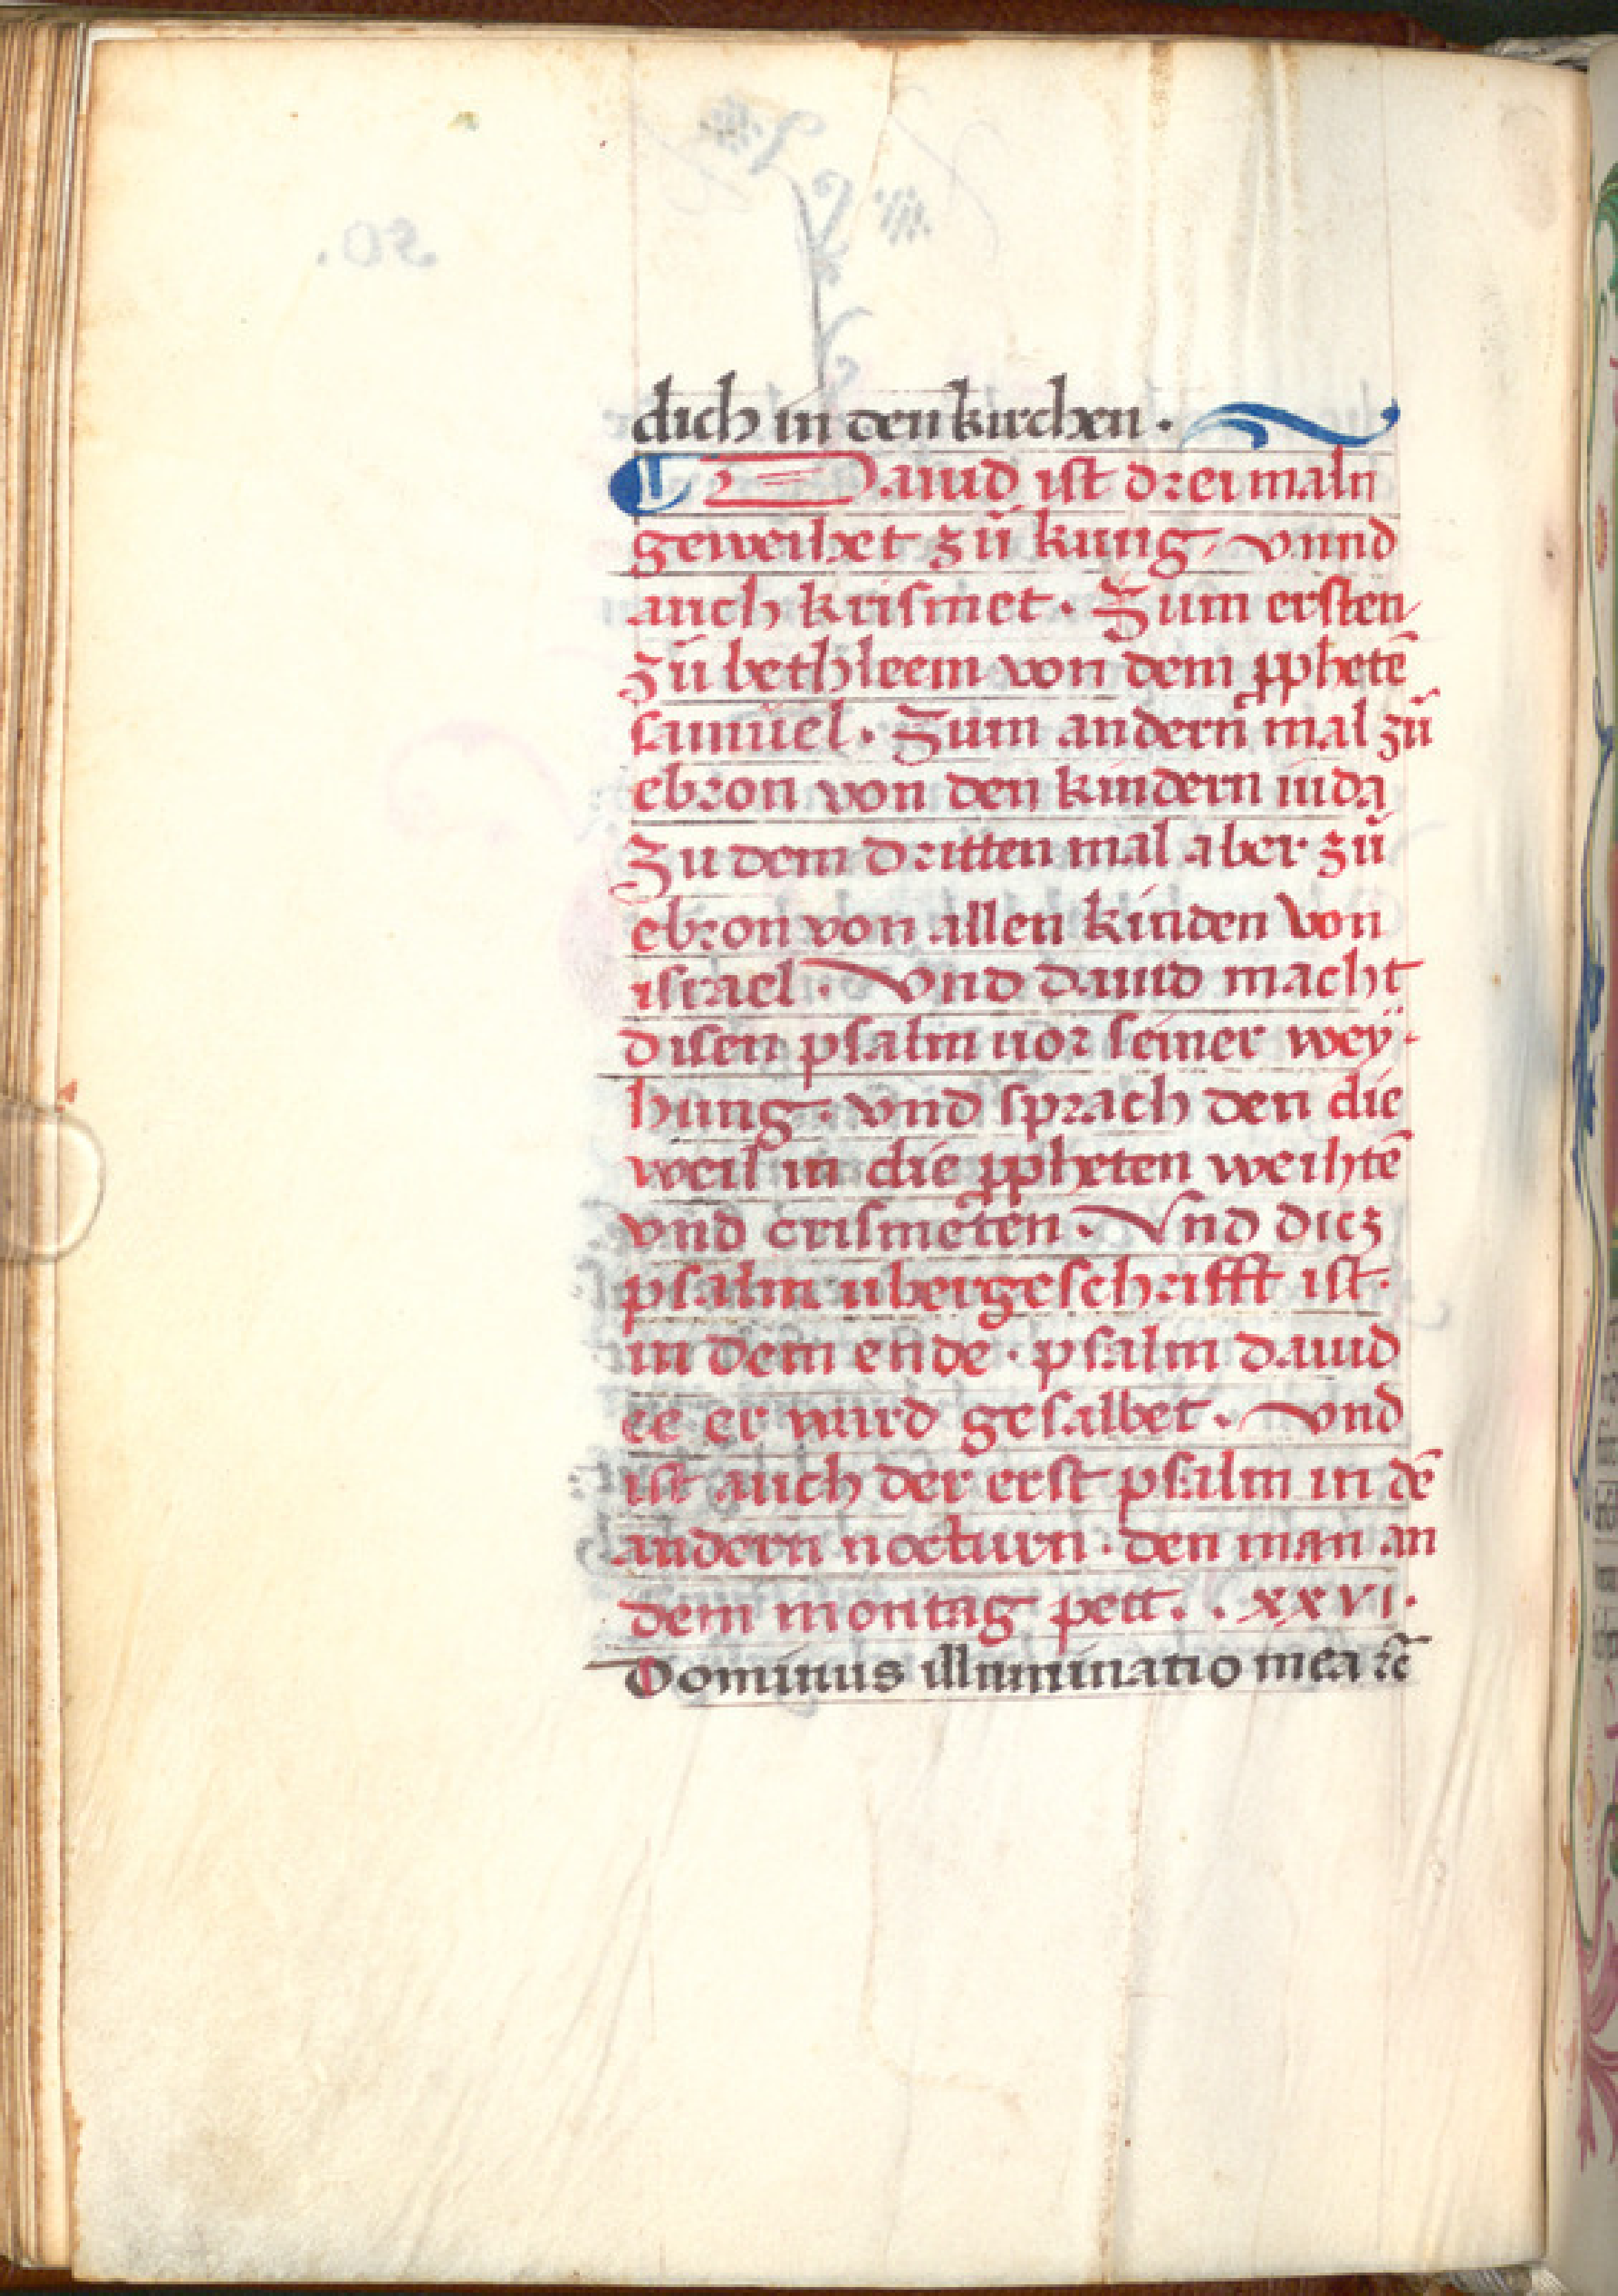 dich in den kirchen ·
Dauid ist drei maln
geweihet zů kung, vnnd
auch krismet · Zum ersten
zů bethleem von dem ꝓphetē
samůel · Zum andern mal zů
ebron von den kindern iuda
Zu dem dritten mal aber zů
ebron von allen kinden von
israel · Vnd dauid macht
disen psalm uor seiner weÿ-
hung · vnd sprach den die
weil in die ꝓpheten weihtē
vnd crismeten · Vnd dicz
psalm ubergeschrifft ist ·
in dem ende · psalm dauid
ee er wurd gesalbet · vnd
ist auch der erst psalm in dē
andern nocturn · den man an
dem montag pett · · xxvi ·
Dominus illuminatio mea ꝛc̄